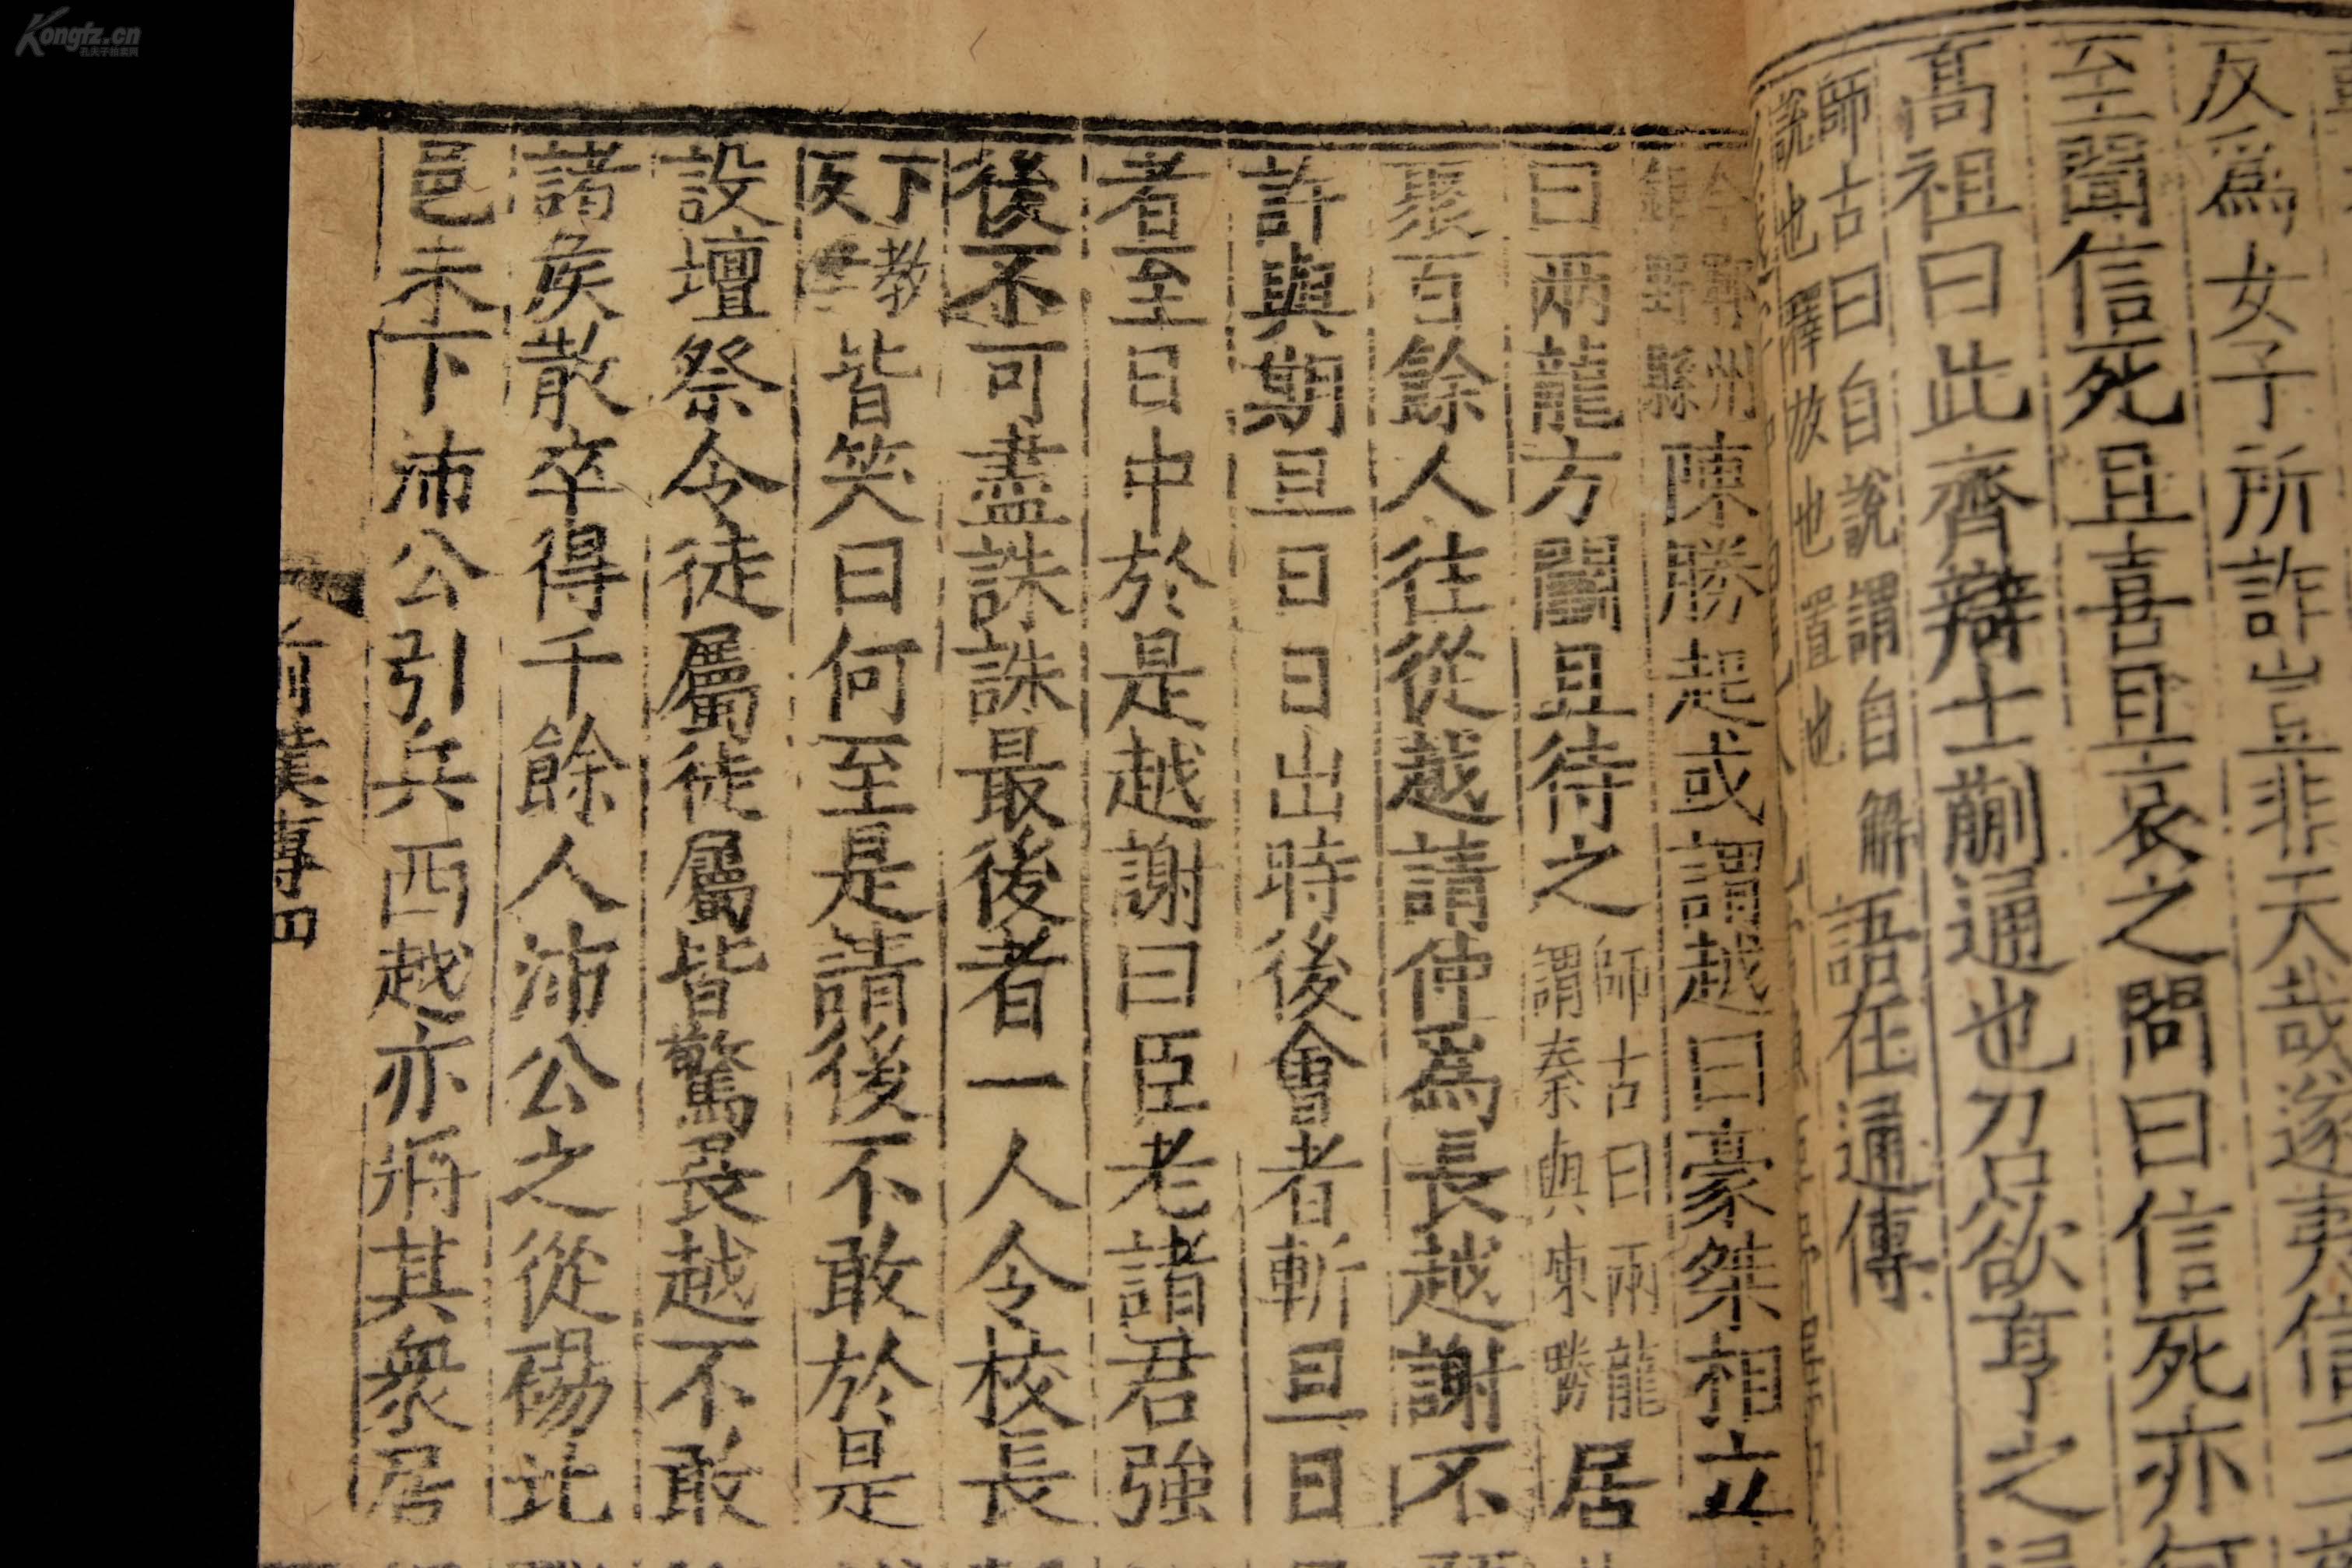 反爲女子所詐豈非天哉遂夷信三
至聞信死且喜且哀之問曰信死亦
高祖曰此齊辯士蒯通也召欲亨之
師古曰自說謂自解
說也釋放也置也
語在通傳
州
野縣
陳勝起或謂越曰豪桀相立
曰兩龍方鬬且待之
師古曰兩龍
謂秦與陳勝
居
聚百餘人往從越請仲爲長越謝不
許與期旦日日出時後會者斬旦日
者至日中於是越謝曰臣老諸君強
後不可盡誅誅最後者一人令校長
下教
反
皆笑曰何至是請後不敢於是
設壇祭令徒屬徒屬皆驚畏越不敢
諸侯散卒得千餘人沛公之從碭北
邑未下沛公引兵西越亦將其衆居
前漢傳四
Kongfz.cn
孔夫子旧书网